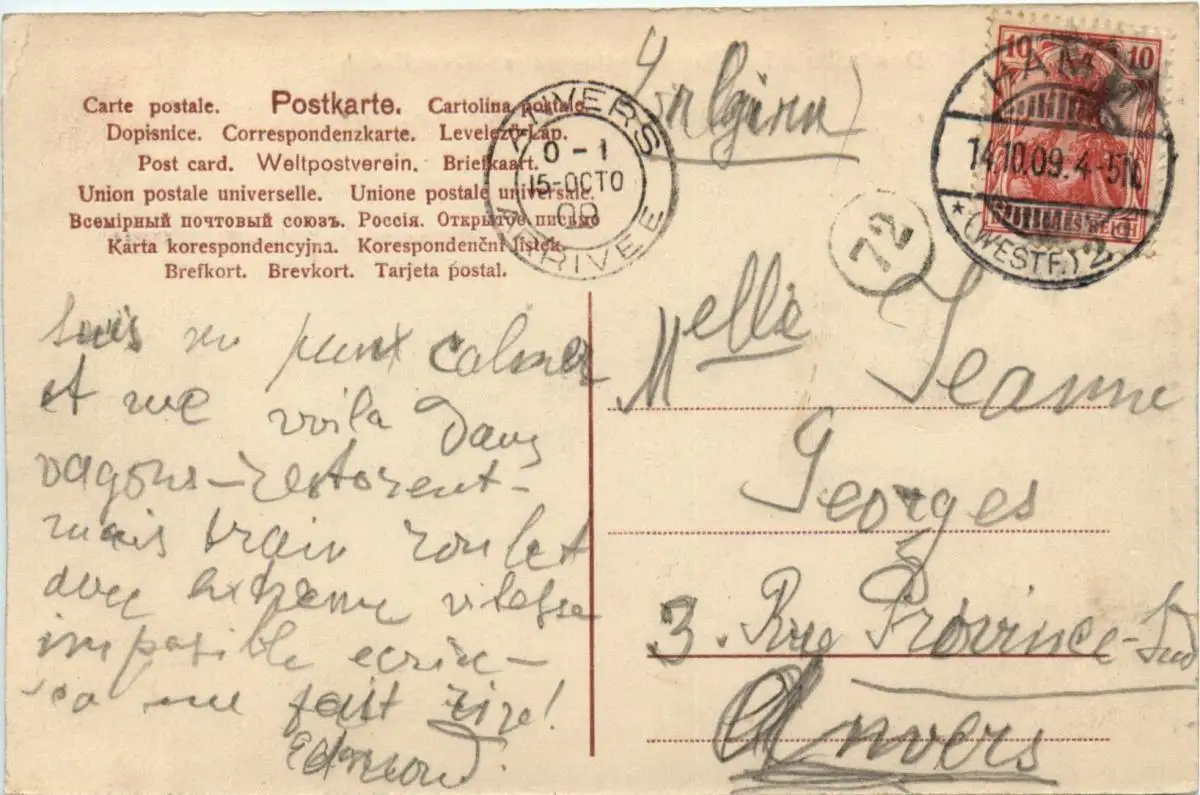 Carte postale. Postkarte. Cartolina postale.
Dopisnice. Correspondenzkarte. Levelező-Lap.
Post card. Weltpostverein. Briefkaart.
Union postale universelle. Unione postale universale.
Всемірный почтовый союзъ. Россія. Открытое письмо
Karta korespondencyjna. Korespondenční lístek.
Brefkort. Brevkort. Tarjeta postal.
ANVERS
0-1
15-OCTO
09
ARRIVEE
10 10
DEUTSCHES REICH
HAMM
14.10.09.4-5N.
*(WESTF.)2
72
Melle Jeanne
Georges
3. Rue Province-Sud
Anvers
suis un calmer
et me voila dans
vagons-restorent-
mais train roulet
avec extreme vitesse
imposible ecrire-
ça me fait rire!
Edmond.